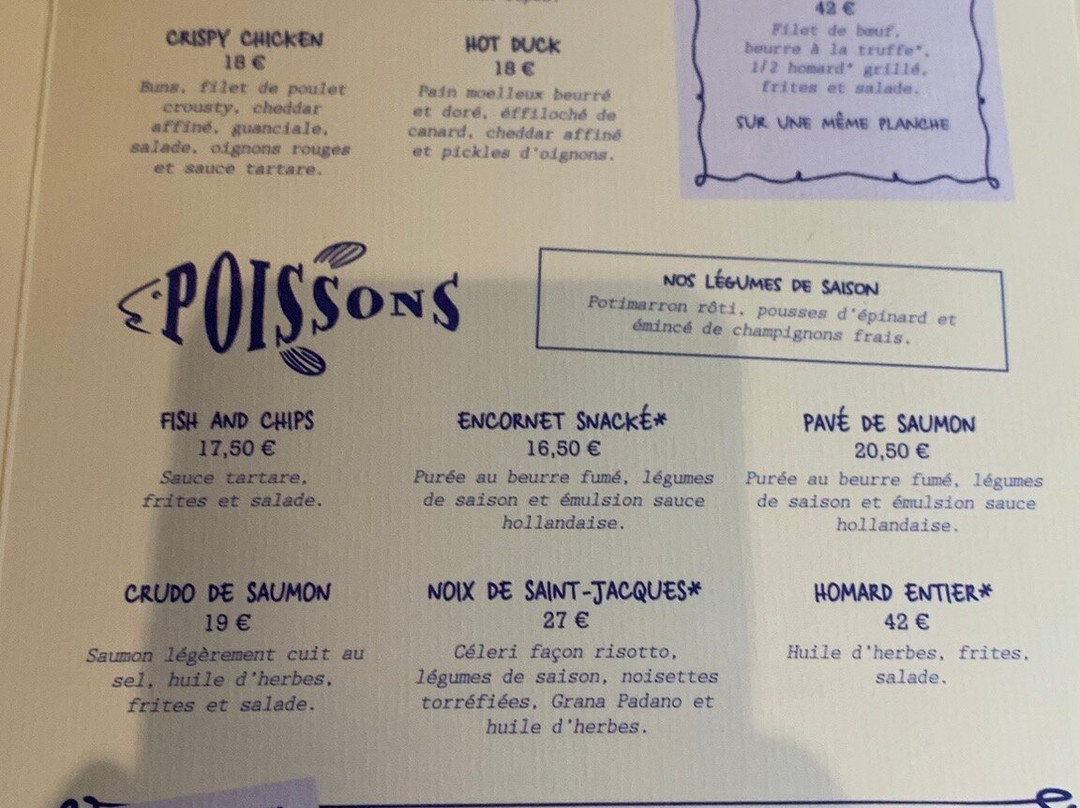 CRISPY CHICKEN
18 €
Buns, filet de poulet
crousty, cheddar
affiné, guanciale,
salade, oignons rouges
et sauce tartare.
HOT DUCK
18 €
Pain moelleux beurré
et doré, éffiloché de
canard, cheddar affiné
et pickles d'oignons.
42 €
Filet de bœuf,
beurre à la truffe*,
1/2 homard* grillé,
frites et salade.
SUR UNE MÊME PLANCHE
POISSONS
NOS LÉGUMES DE SAISON
Potimarron rôti, pousses d'épinard et
émincé de champignons frais.
FISH AND CHIPS
17,50 €
Sauce tartare,
frites et salade.
ENCORNET SNACKÉ*
16,50 €
Purée au beurre fumé, légumes
de saison et émulsion sauce
hollandaise.
PAVÉ DE SAUMON
20,50 €
Purée au beurre fumé, légumes
de saison et émulsion sauce
hollandaise.
CRUDO DE SAUMON
19 €
Saumon légèrement cuit au
sel, huile d'herbes,
frites et salade.
NOIX DE SAINT-JACQUES*
27 €
Céleri façon risotto,
légumes de saison, noisettes
torréfiées, Grana Padano et
huile d'herbes.
HOMARD ENTIER*
42 €
Huile d'herbes, frites,
salade.